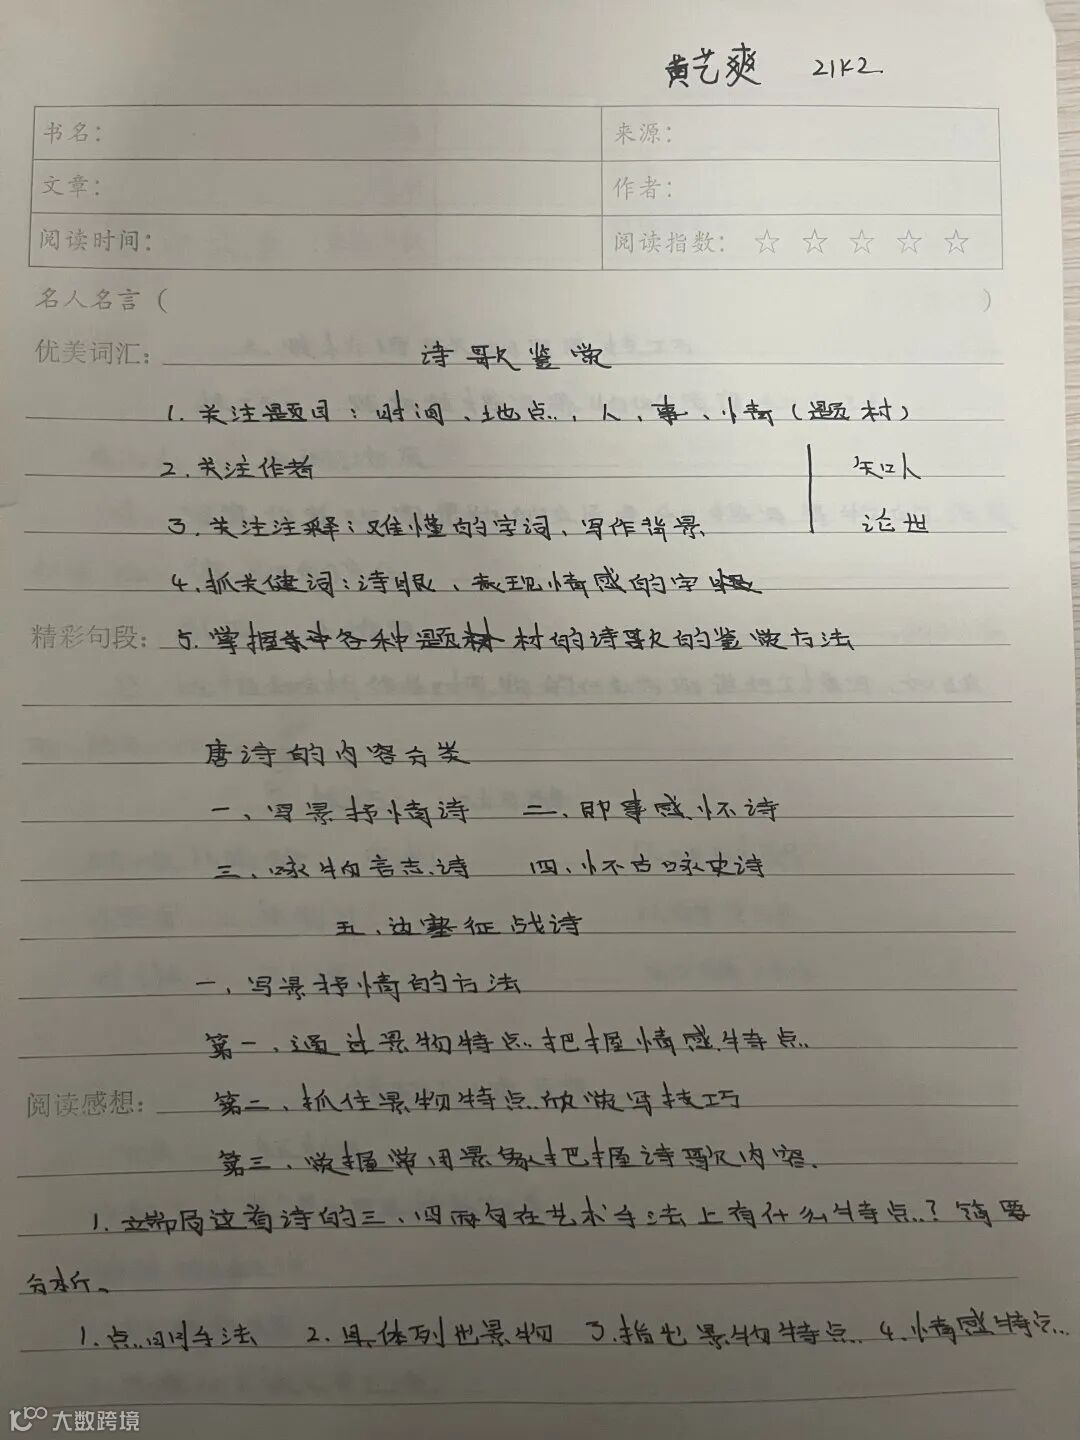 黄艺爽 21K2
书名： 来源：
文章： 作者：
阅读时间： 阅读指数：☆ ☆ ☆ ☆ ☆
名人名言（ ）
优美词汇： 诗歌鉴赏
1. 关注题目：时间、地点、人、事、情（题材）
2. 关注作者 知人
3. 关注注释：难懂的字词、写作背景 论世
4. 抓关键词：诗眼、表现情感的字眼
精彩句段： 5. 掌握各种题材的诗歌的鉴赏方法
唐诗的内容分类
一、写景抒情诗 二、即事感怀诗
三、咏物言志诗 四、怀古咏史诗
五、边塞征战诗
一、写景抒情的方法
第一、通过景物特点把握情感特点
阅读感想： 第二、抓住景物特点欣赏写技巧
第三、掌握常用景象把握诗歌内容.
1. 这首诗的三、四两句在艺术手法上有什么特点？简要
分析。
1. 点明手法 2. 具体列出景物 3. 指出景物特点 4. 情感特点
大数跨境